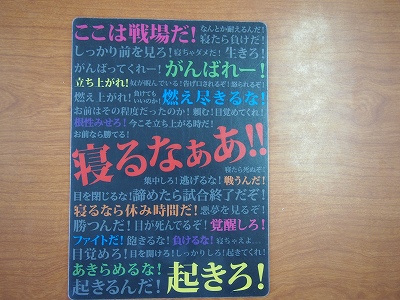 ここは戦場だ! なんとか耐えるんだ! 寝たら負けだ!
しっかり前を見ろ! 寝ちゃダメだ! 生きろ!
がんばってくれー! がんばれー!
立ち上がれ! 奴が睨んでいる! 告げ口されるぞ! 怒られるぞ!
燃え上がれ! 負けてもいいのか! 燃え尽きるな!
お前はその程度だったのか! 頼む! 目覚めてくれ!
根性みせろ! 今こそ立ち上がる時だ!
お前なら勝てる!
寝るなぁあ!!
寝たら死ぬぞ!
集中しろ! 逃げるな! 戦うんだ!
目を閉じるな! 諦めたら試合終了だぞ!
寝るなら休み時間だ! 悪夢を見るぞ!
勝つんだ! 目が死んでるぞ! 覚醒しろ!
ファイトだ! 飽きるな! 負けるな! 寝ちゃえよ…
目覚めろ! 目を開けろ! しっかりしろ! 起きてくれ!
あきらめるな! 起きろ!
起きるんだ!